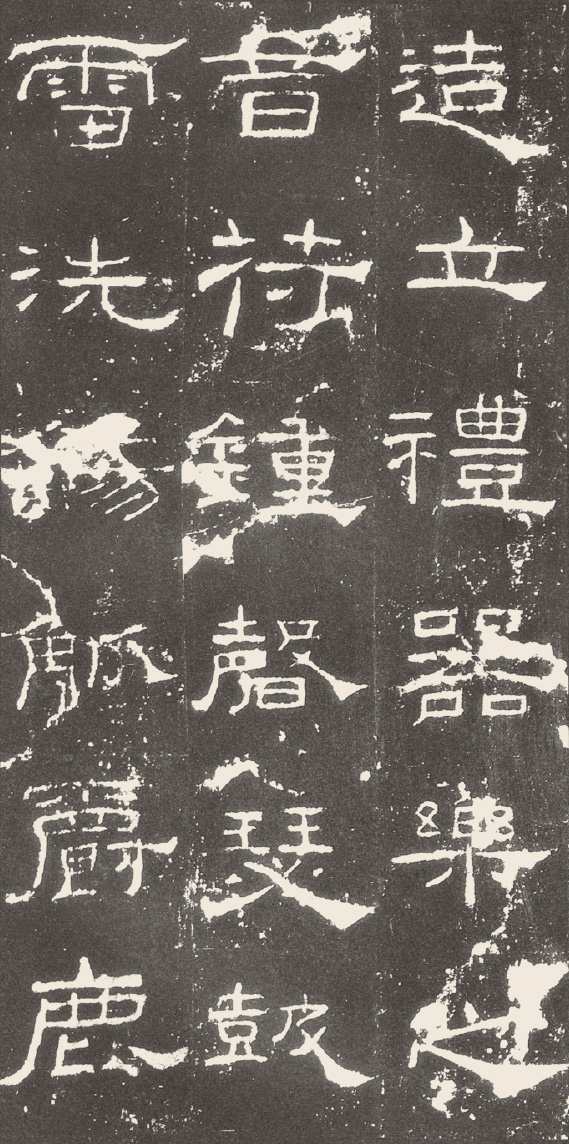 造立禮器樂之
音苻鍾磬瑟皷
雷洗觴觚爵鹿